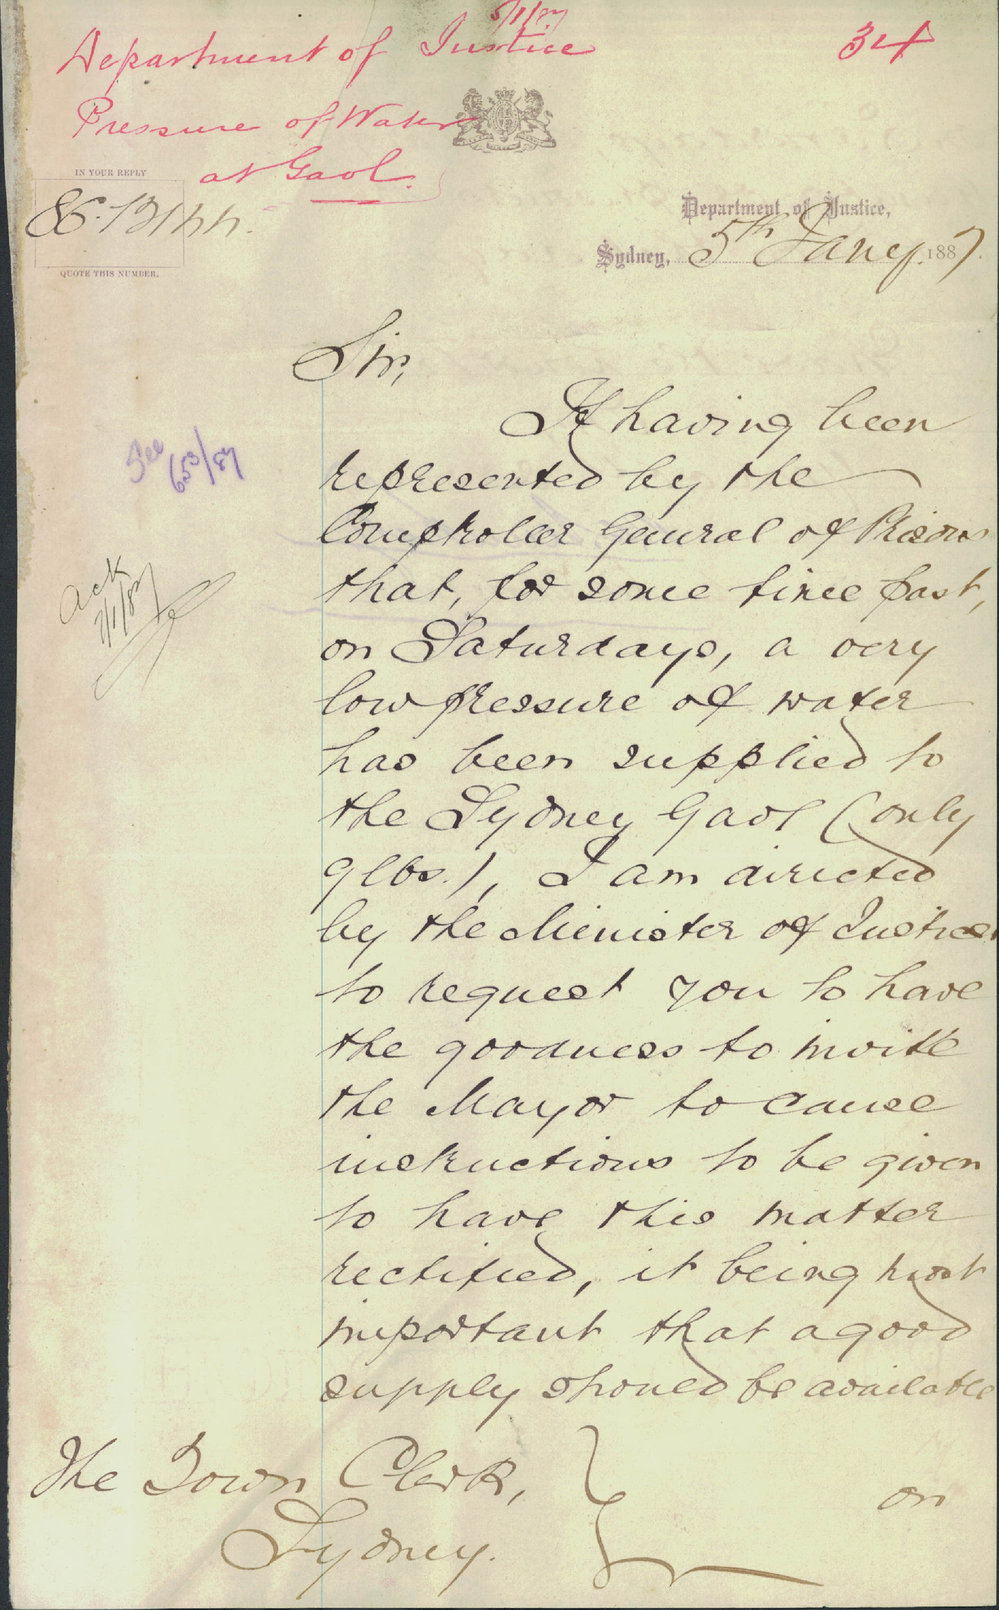 5/1/87
Department of Justice
34
Pressure of Water
at Gaol.
IN YOUR REPLY
86.12144.
QUOTE THIS NUMBER.
Department of Justice,
Sydney, 5th Jany. 1887.
Sir,
It having been
represented by the
Comptroller General of Prisons
that, for some time past,
on Saturdays, a very
low pressure of water
has been supplied to
the Sydney Gaol (only
9 lbs.), I am directed
by the Minister of Justice
to request you to have
the goodness to invite
the Mayor to cause
instructions to be given
to have this matter
rectified, it being most
important that a good
supply should be available
See
653/87
Ack
7/1/87
The Town Clerk,
Sydney.
on